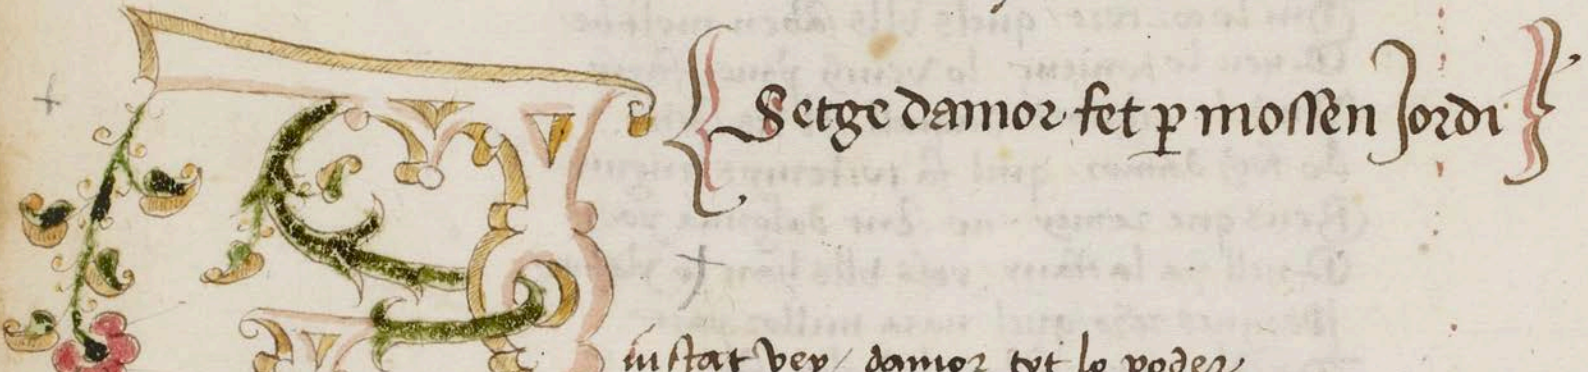 Setge damor fet ꝑ mossen Jordi
iustat vey / damor tot lo poder